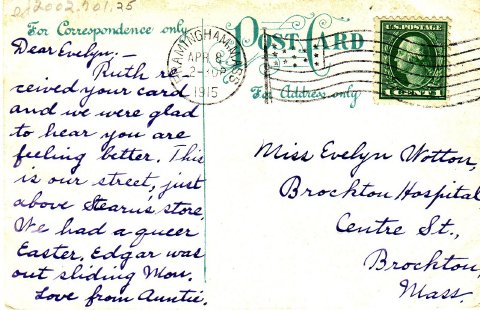 2002.901.25
For Correspondence only
POST CARD
For Address only
FRAMINGHAM, MASS.
APR 8
2-30P
1915
U.S. POSTAGE
1 CENT 1
Dear Evelyn,—
Ruth re
ceived your card
and we were glad
to hear you are
feeling better. This
is our street, just
above Stearn's store.
We had a queer
Easter. Edgar was
out sliding Mon.
Love from Auntie.
Miss Evelyn Wotton,
Brockton Hospital
Centre St.,
Brockton,
Mass.